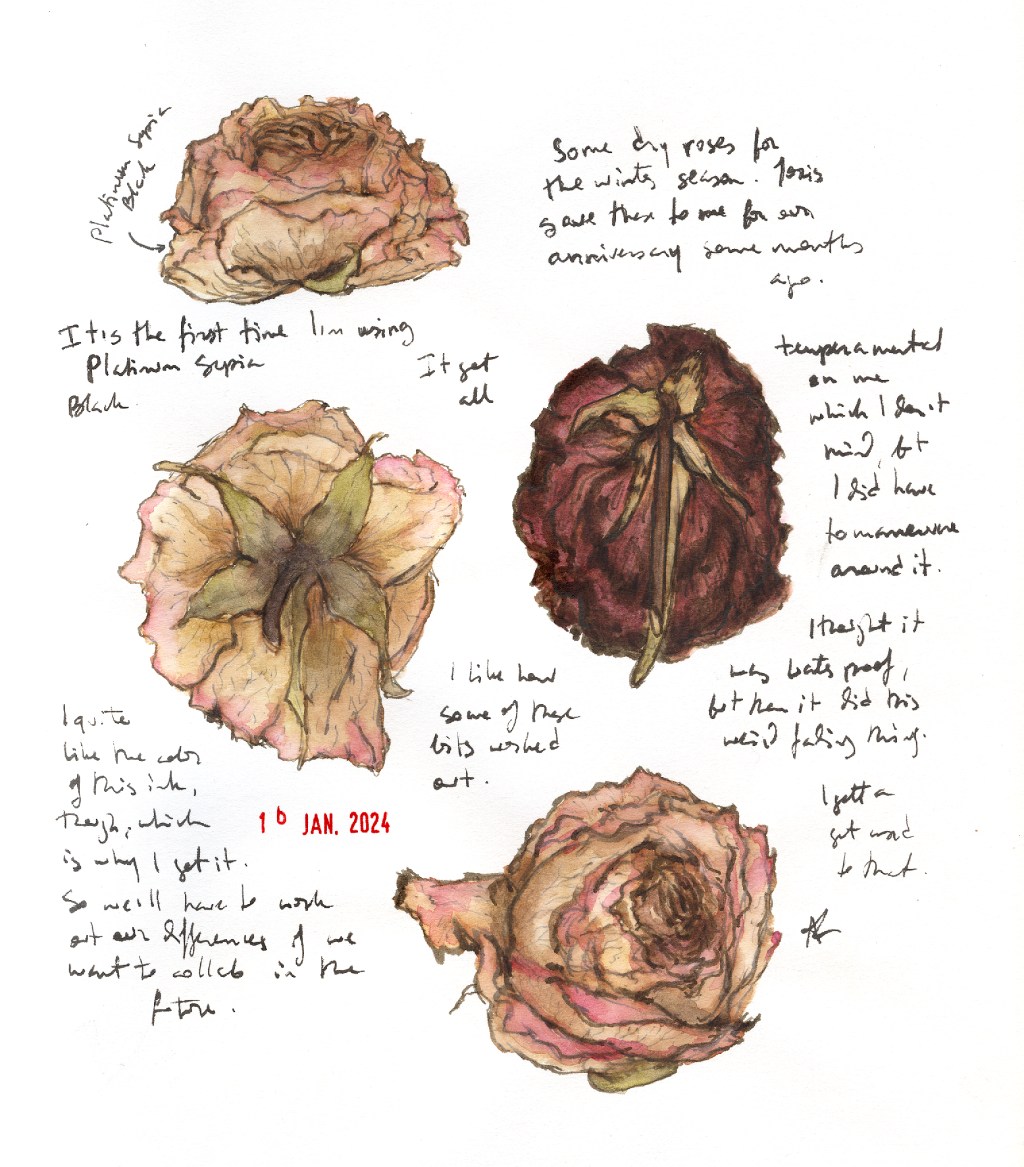 Platinum Sepia
Black
Some dry roses for
the winter season. Joris
gave them to me for our
anniversary some months
ago.
It is the first time I'm using
Platinum Sepia
Black.
It got
all
temperamental
on me
which I don't
mind, but
I did have
to maneuver
around it.
I thought it
was water proof,
but then it did this
weird fading thing.
I like how
some of these
bits worked
out.
I quite
like the color
of this ink,
though, which
is why I got it.
So we'll have to work
out our differences if we
want to collab in the
future.
16 JAN. 2024
I gotta
get used
to that.